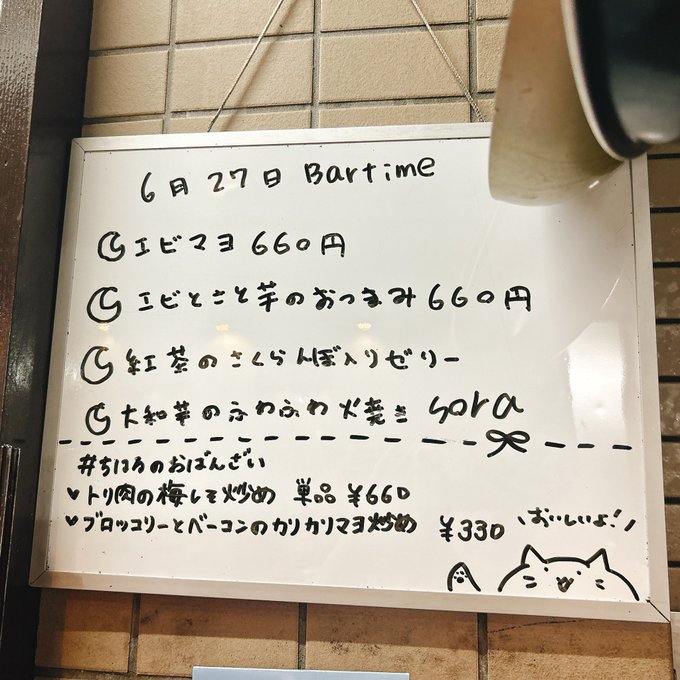 6月27日 Bartime
エビマヨ 660円
エビとさと芋のおつまみ 660円
紅茶のさくらんぼ入りゼリー
大和芋のふわふわ焼き sora
#ちひろのおばんざい
トリ肉の梅しそ炒め 単品 ¥660
ブロッコリーとベーコンのカリカリマヨ炒め ¥330
おいしいよ!